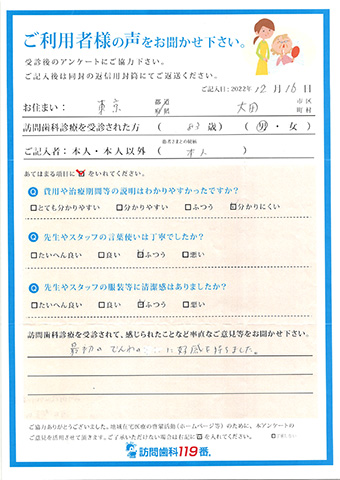 ご利用者様の声をお聞かせ下さい。
受診後のアンケートにご協力下さい。
ご記入後は同封の返信用封筒にてご返送ください。
ご記入日：2022年 12月 16日
お住まい： 東京 都道府県 大田 市区町村
訪問歯科診療を受診された方 ( 歳) (男・女)
ご記入者：本人・本人以外 ( 本人 )
あてはまる項目に✓をいれてください。
Q 費用や治療期間等の説明はわかりやすかったですか？
□とても分かりやすい □分かりやすい □ふつう ☑分かりにくい
Q 先生やスタッフの言葉使いは丁寧でしたか？
□たいへん良い □良い ☑ふつう □悪い
Q 先生やスタッフの服装等に清潔感はありましたか？
□たいへん良い □良い ☑ふつう □悪い
訪問歯科診療を受診されて、感じられたことなど率直なご意見等をお聞かせ下さい。
最初の でんわの に好感を持ちました。
ご協力ありがとうございました。地域在宅医療の啓蒙活動(ホームページ等)のために、本アンケートの
ご意見を活用させて頂きます。ご了承いただけない場合は右記に☑を入れてください。
訪問歯科119番。